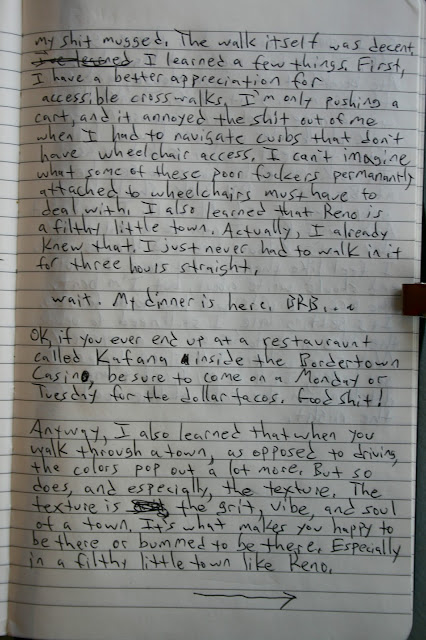 my shit mugged. The walk itself was decent.
I learned a few things. First,
I have a better appreciation for
accessible crosswalks. I'm only pushing a
cart, and it annoyed the shit out of me
when I had to navigate curbs that don't
have wheelchair access. I can't imagine
what some of these poor fuckers permanantly
attached to wheelchairs must have to
deal with. I also learned that Reno is
a filthy little town. Actually, I already
knew that. I just never had to walk in it
for three hours straight.
wait. My dinner is here. BRB...
OK, if you ever end up at a restauraunt
called Kafana inside the Bordertown
Casino, be sure to come on a Monday or
Tuesday for the dollar tacos. Good shit!
Anyway, I also learned that when you
walk through a town, as opposed to driving,
the colors pop out a lot more. But so
does, and especially, the texture. The
texture is the grit, vibe, and soul
of a town. It's what makes you happy to
be there or bummed to be there. Especially
in a filthy little town like Reno.